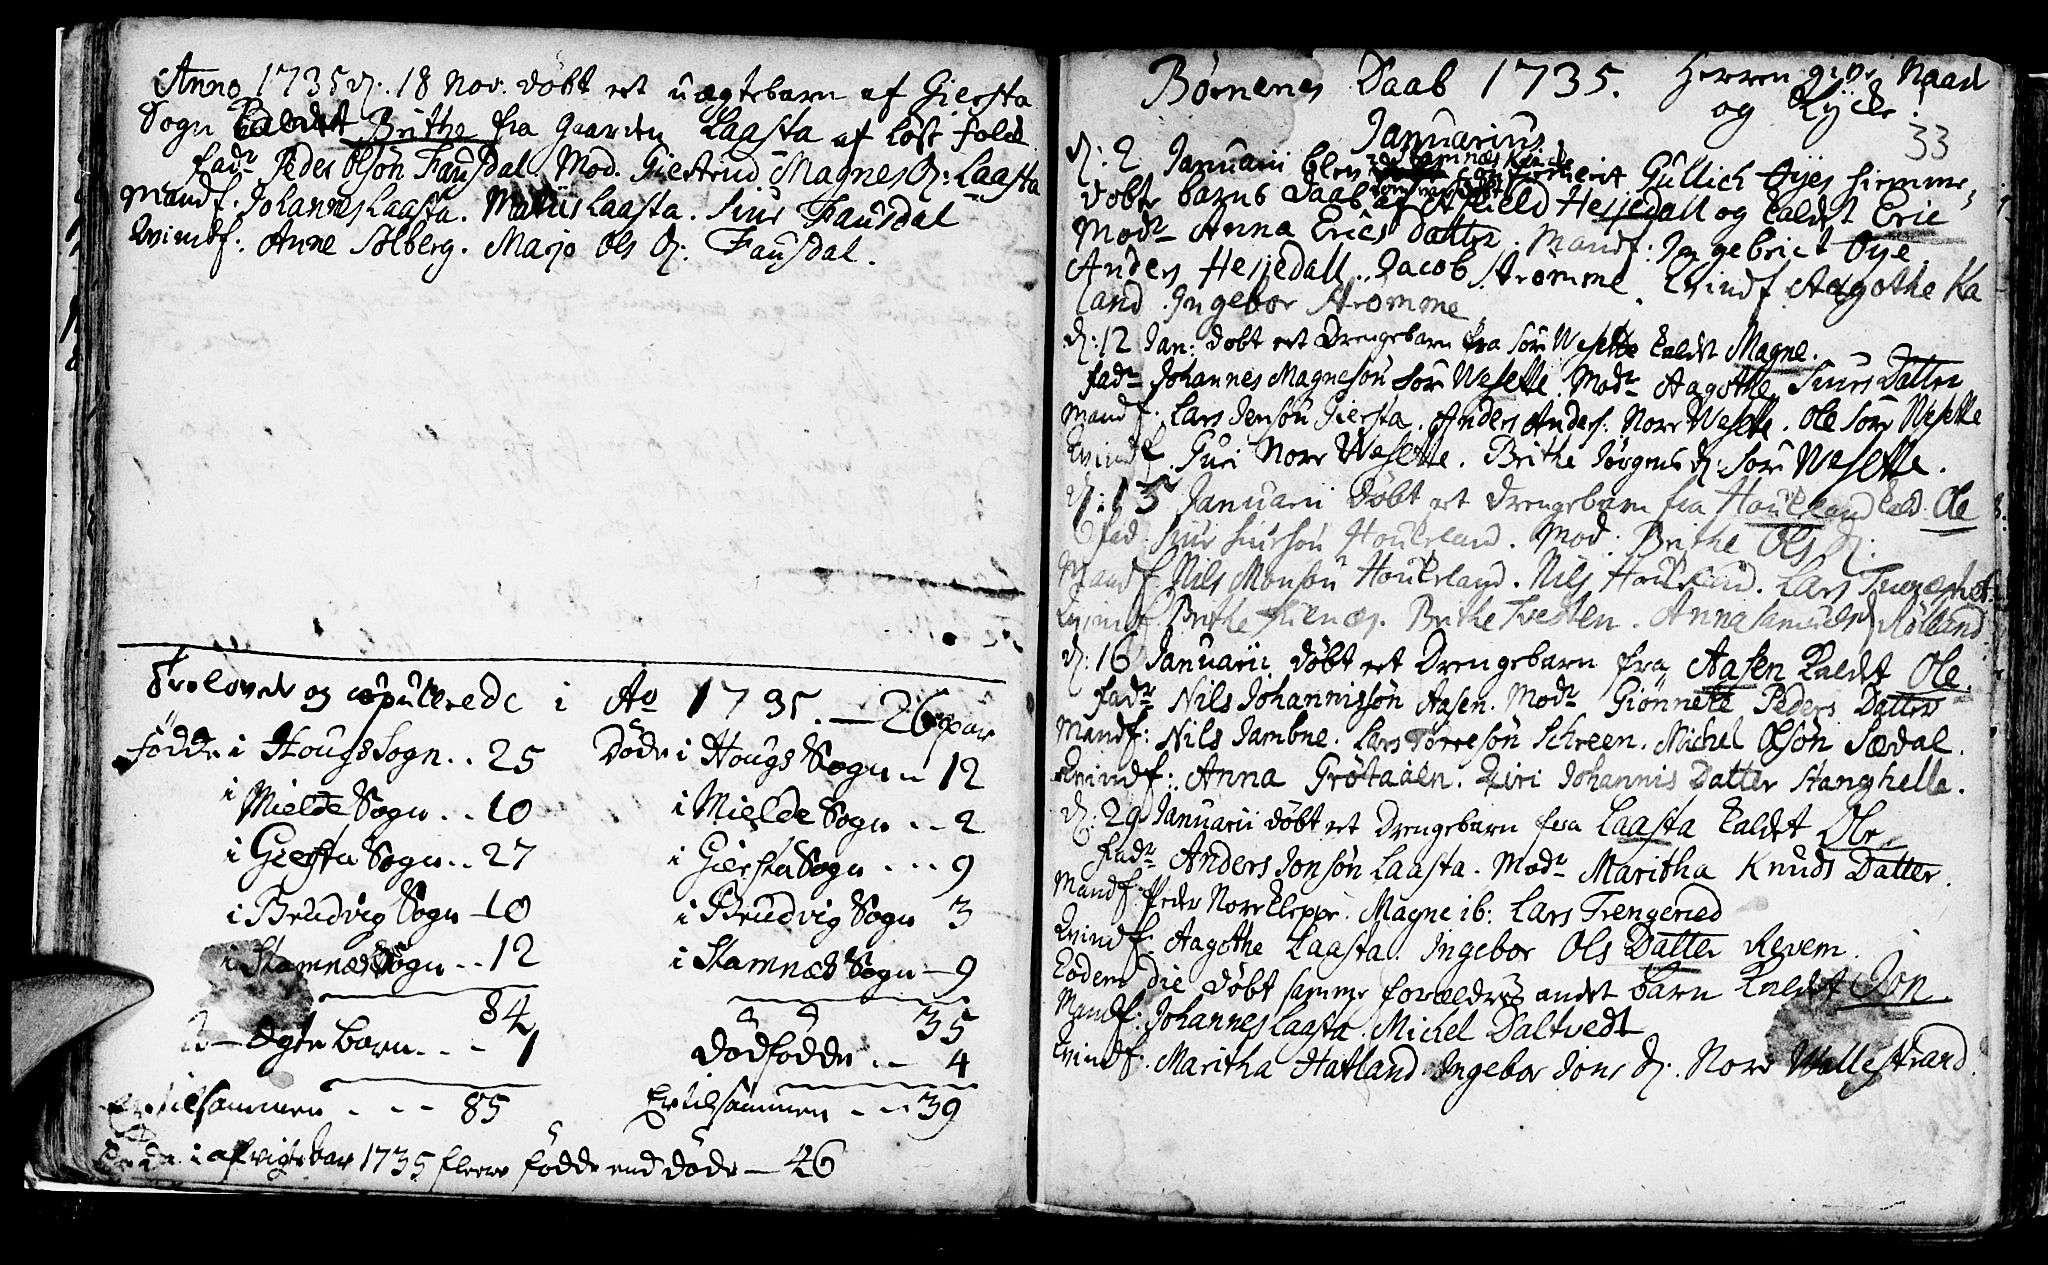 Anno 1735 d: 18 Nov. döbt et uægtebarn af Giersta
Sogn kaldet Brithe fra gaarden Laasta af löst folck
fadr Peder Olsön Fausdal. Mod. Giertrud Magnes D: Laasta
Mandf. Johannes Laasta. Matiis Laasta. Siur Fausdal
Qvindf: Anne Solberg. Marjo Ols D: Fausdal.
Trolovede og copulerede i Ao 1735. — 26 par
födde i Hougs Sogn .. 25
i Mielde Sogn .. 10
i Giersta Sogn .. 27
i Brudvig Sogn — 10
i Stamnæs Sogn .. 12
84
Ægte barn .. - 1
Er tilsammen - - - 85
Döde i Hougs Sogn — 12
i Mielde Sogn .. 2
i Giersta Sogn ... 9
i Brudvig Sogn 3
i Stamnæs Sogn — 9
35
dödfödde .. 4
Er tilsammen - .. 39
i afvigte aar 1735 fleere födde end döde — 46
Börnenes Daab 1735. Herren give Naad
og Lycke!
33
Januarius
d: 2 Januarii blev Gullich Öyes hiemme
döbte barns Daab Hesjedall og kaldet Eric
Modr Anna Erics Datter. Mandf: Ingebrict Öye
Anders Hesjedall. Jacob Strömme. Qvindf Aagothe Ka
land. Ingebor Strömme
d: 12 Jan: döbt et Drengebarn fra Söre Wesette kaldt Magne.
fadr Johannes Magnesön Sörr Wesette. Modr Aagothe Siurs Datter
Mandf. Lars Jensön Giersta. Anders Anders: Norr Wesette. Ole Sörr Wesette
Qvindf. Guri Norr Wesette. Brithe Jörgens d: Sörr Wesette.
d: 15 Januarii döbt et Drengebarn fra Houkeland kald. Ole
fad: Siur Siursön Houkeland. Mod: Brithe Ols D:
Mandf. Nils Monsön Houkeland. Nils Houkeland. Lars
Qvindf. Brithe. Brithe Tvedten. Anna Samuels D Röland
d: 16 Januarii döbt et Drengebarn fra Aasen kaldt Ole.
fadr Nils Johannissön Aasen. Modr Giönnete Peders Datter
Mandf: Nils Jambne. Lars Törresön Schreen. Michel Olsön Sædal.
Qvindf: Anna Grötaaen. Ziri Johannis Datter Stanghelle.
d: 29 Januarii döbt et Drengebarn fra Laasta kaldt Ole
fadr Anders Jonsön Laasta. Modr Maritha Knuds Datter.
Mandf. Peder Nore Kleppe. Magne ib: Lars Trengeried
Qvindf. Aagothe Laasta. Ingebor Ols Datter Revem.
Eodem die döbt samme forældres andet barn kaldet Jon.
Mandf: Johannes Laasta. Michel Daltvedt
Qvindf. Maritha Hatland. Ingebor Jons D. Nore Wallestrand.